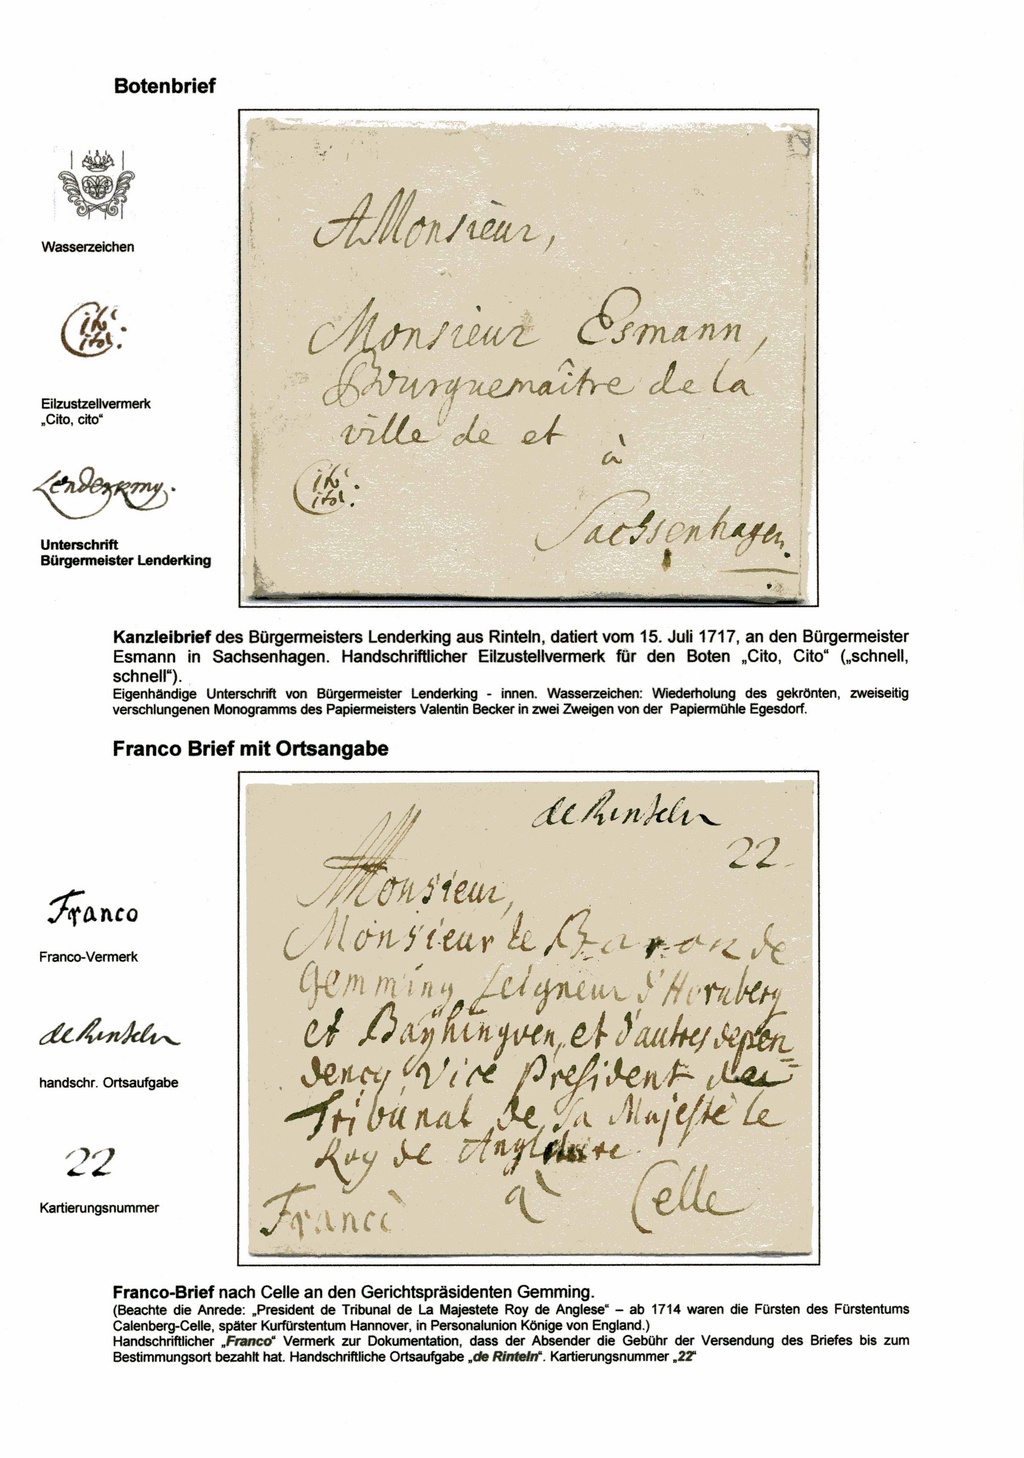 Botenbrief
A Monsieur,
Wasserzeichen
Monsieur Esmann,
Bourguemaître de la
ville de et à
Cito
cito.
Cito
cito.
Eilzustzellvermerk
„Cito, cito“
Sachsenhagen.
Lenderking.
Unterschrift
Bürgermeister Lenderking
Kanzleibrief des Bürgermeisters Lenderking aus Rinteln, datiert vom 15. Juli 1717, an den Bürgermeister
Esmann in Sachsenhagen. Handschriftlicher Eilzustellvermerk für den Boten „Cito, Cito“ („schnell,
schnell“).
Eigenhändige Unterschrift von Bürgermeister Lenderking - innen. Wasserzeichen: Wiederholung des gekrönten, zweiseitig
verschlungenen Monogramms des Papiermeisters Valentin Becker in zwei Zweigen von der Papiermühle Egesdorf.
Franco Brief mit Ortsangabe
de Rinteln
22
Monsieur,
Monsieur le Baron de
Gemming Seigneur d'Hornberg
et Bayhingven, et d'autres depen=
dency, Vice President
Tribunal de Sa Majesté le
Roy de
Franco à Celle
Franco
Franco-Vermerk
de Rinteln
handschr. Ortsaufgabe
22
Kartierungsnummer
Franco-Brief nach Celle an den Gerichtspräsidenten Gemming.
(Beachte die Anrede: „President de Tribunal de La Majestete Roy de Anglese“ – ab 1714 waren die Fürsten des Fürstentums
Calenberg-Celle, später Kurfürstentum Hannover, in Personalunion Könige von England.)
Handschriftlicher „Franco“ Vermerk zur Dokumentation, dass der Absender die Gebühr der Versendung des Briefes bis zum
Bestimmungsort bezahlt hat. Handschriftliche Ortsaufgabe „de Rinteln“. Kartierungsnummer „22“